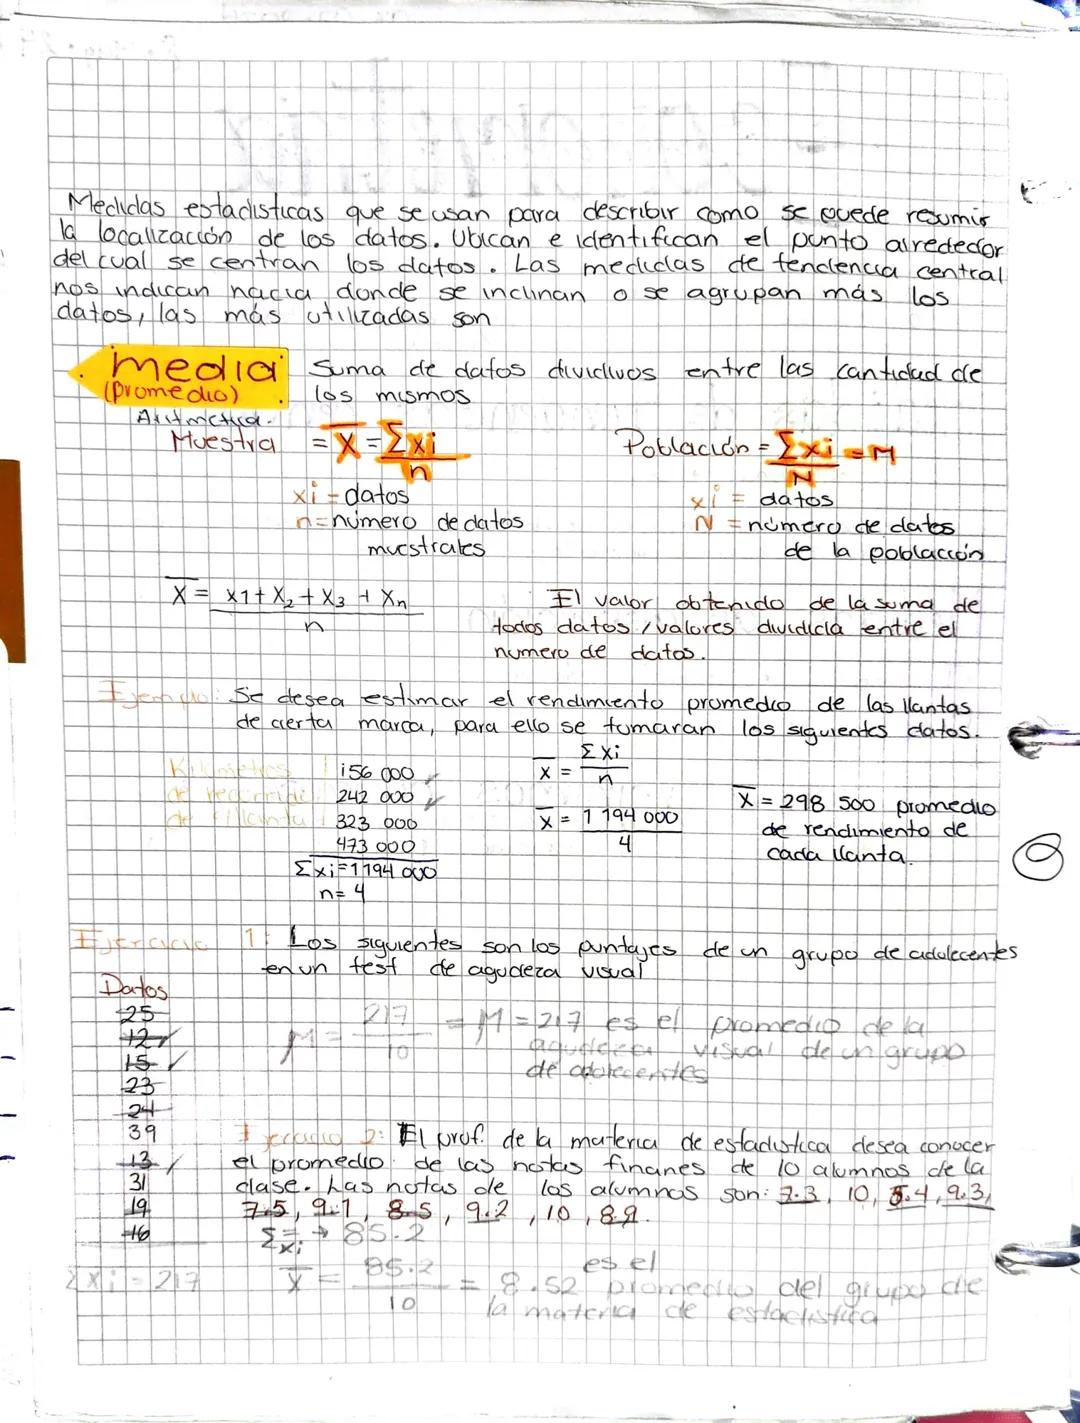 Medidas estadisticas que se usan para describir como se puede resumir
la localización de los datos. Ubican e identifican el punto alrededor
del cual se centran los datos. Las medidas de tendencia central
nos indican hacia donde se inclinan o se agrupan más los
datos, las más utilizadas son
media Suma de datos dividivos entre las cantidad de
(promedio) los mismos
Aritmetica.
Muestra = X̄ = Σxi / n
Población = Σxi / N = M
xi = datos
n = número de datos
muestrales
xi = datos
N = número de datos
de la población
X̄ = x1 + X2 + X3 + Xn / n
El valor obtenido de la suma de
todos datos / valores dividida entre el
numero de datos.
Ejemplo: Se desea estimar el rendimiento promedio de las llantas
de cierta marca, para ello se tomaran los siguientes datos.
Kilometros
de recorrido
156 000
242 000
323 000
473 000
Σxi = 1194 000
n = 4
X̄ = Σxi / n
X̄ = 1 194 000 / 4
X̄ = 298 500 promedio
de rendimiento de
cada llanta.
Ejercicio 1: Los siguientes son los puntajes de un grupo de adolecentes
en un test de agudeza visual
Datos
25
12
15
23
24
39
13
31
19
16
Σxi = 217
M = 217 / 10 = M = 217 es el promedio de la
agudeza visual de un grupo
de adolecentes
Ejercicio 2: El prof. de la materia de estadistica desea conocer
el promedio de las notas finanes de 10 alumnos de la
clase. Las notas de los alumnos son: 7.3, 10, 5.4, 9.3,
7.5, 9.1, 8.5, 9.2, 10, 8.9.
Σxi = → 85.2
X̄ = 85.2 / 10 = 8.52 es el promedio del grupo de
la materia de estadistica